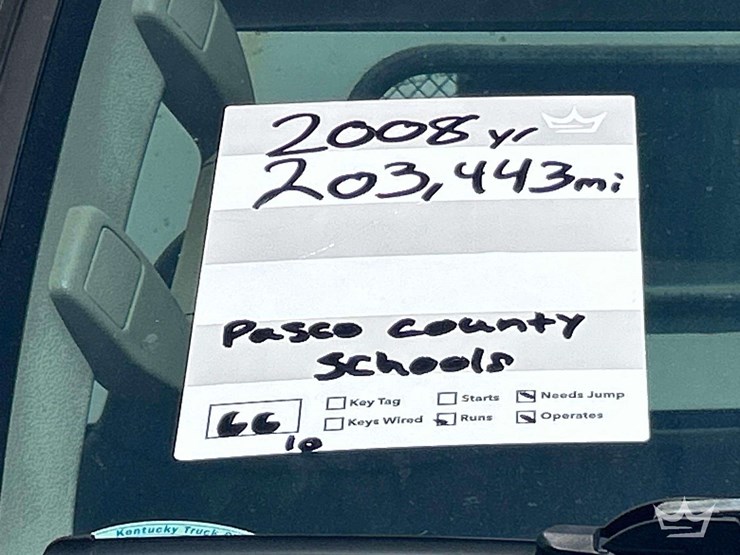 2008 yr
203,443mi
Pasco County
Schools
Key Tag
Starts
Needs Jump
Keys Wired
Runs
Operates
66
10
Kentucky Truck